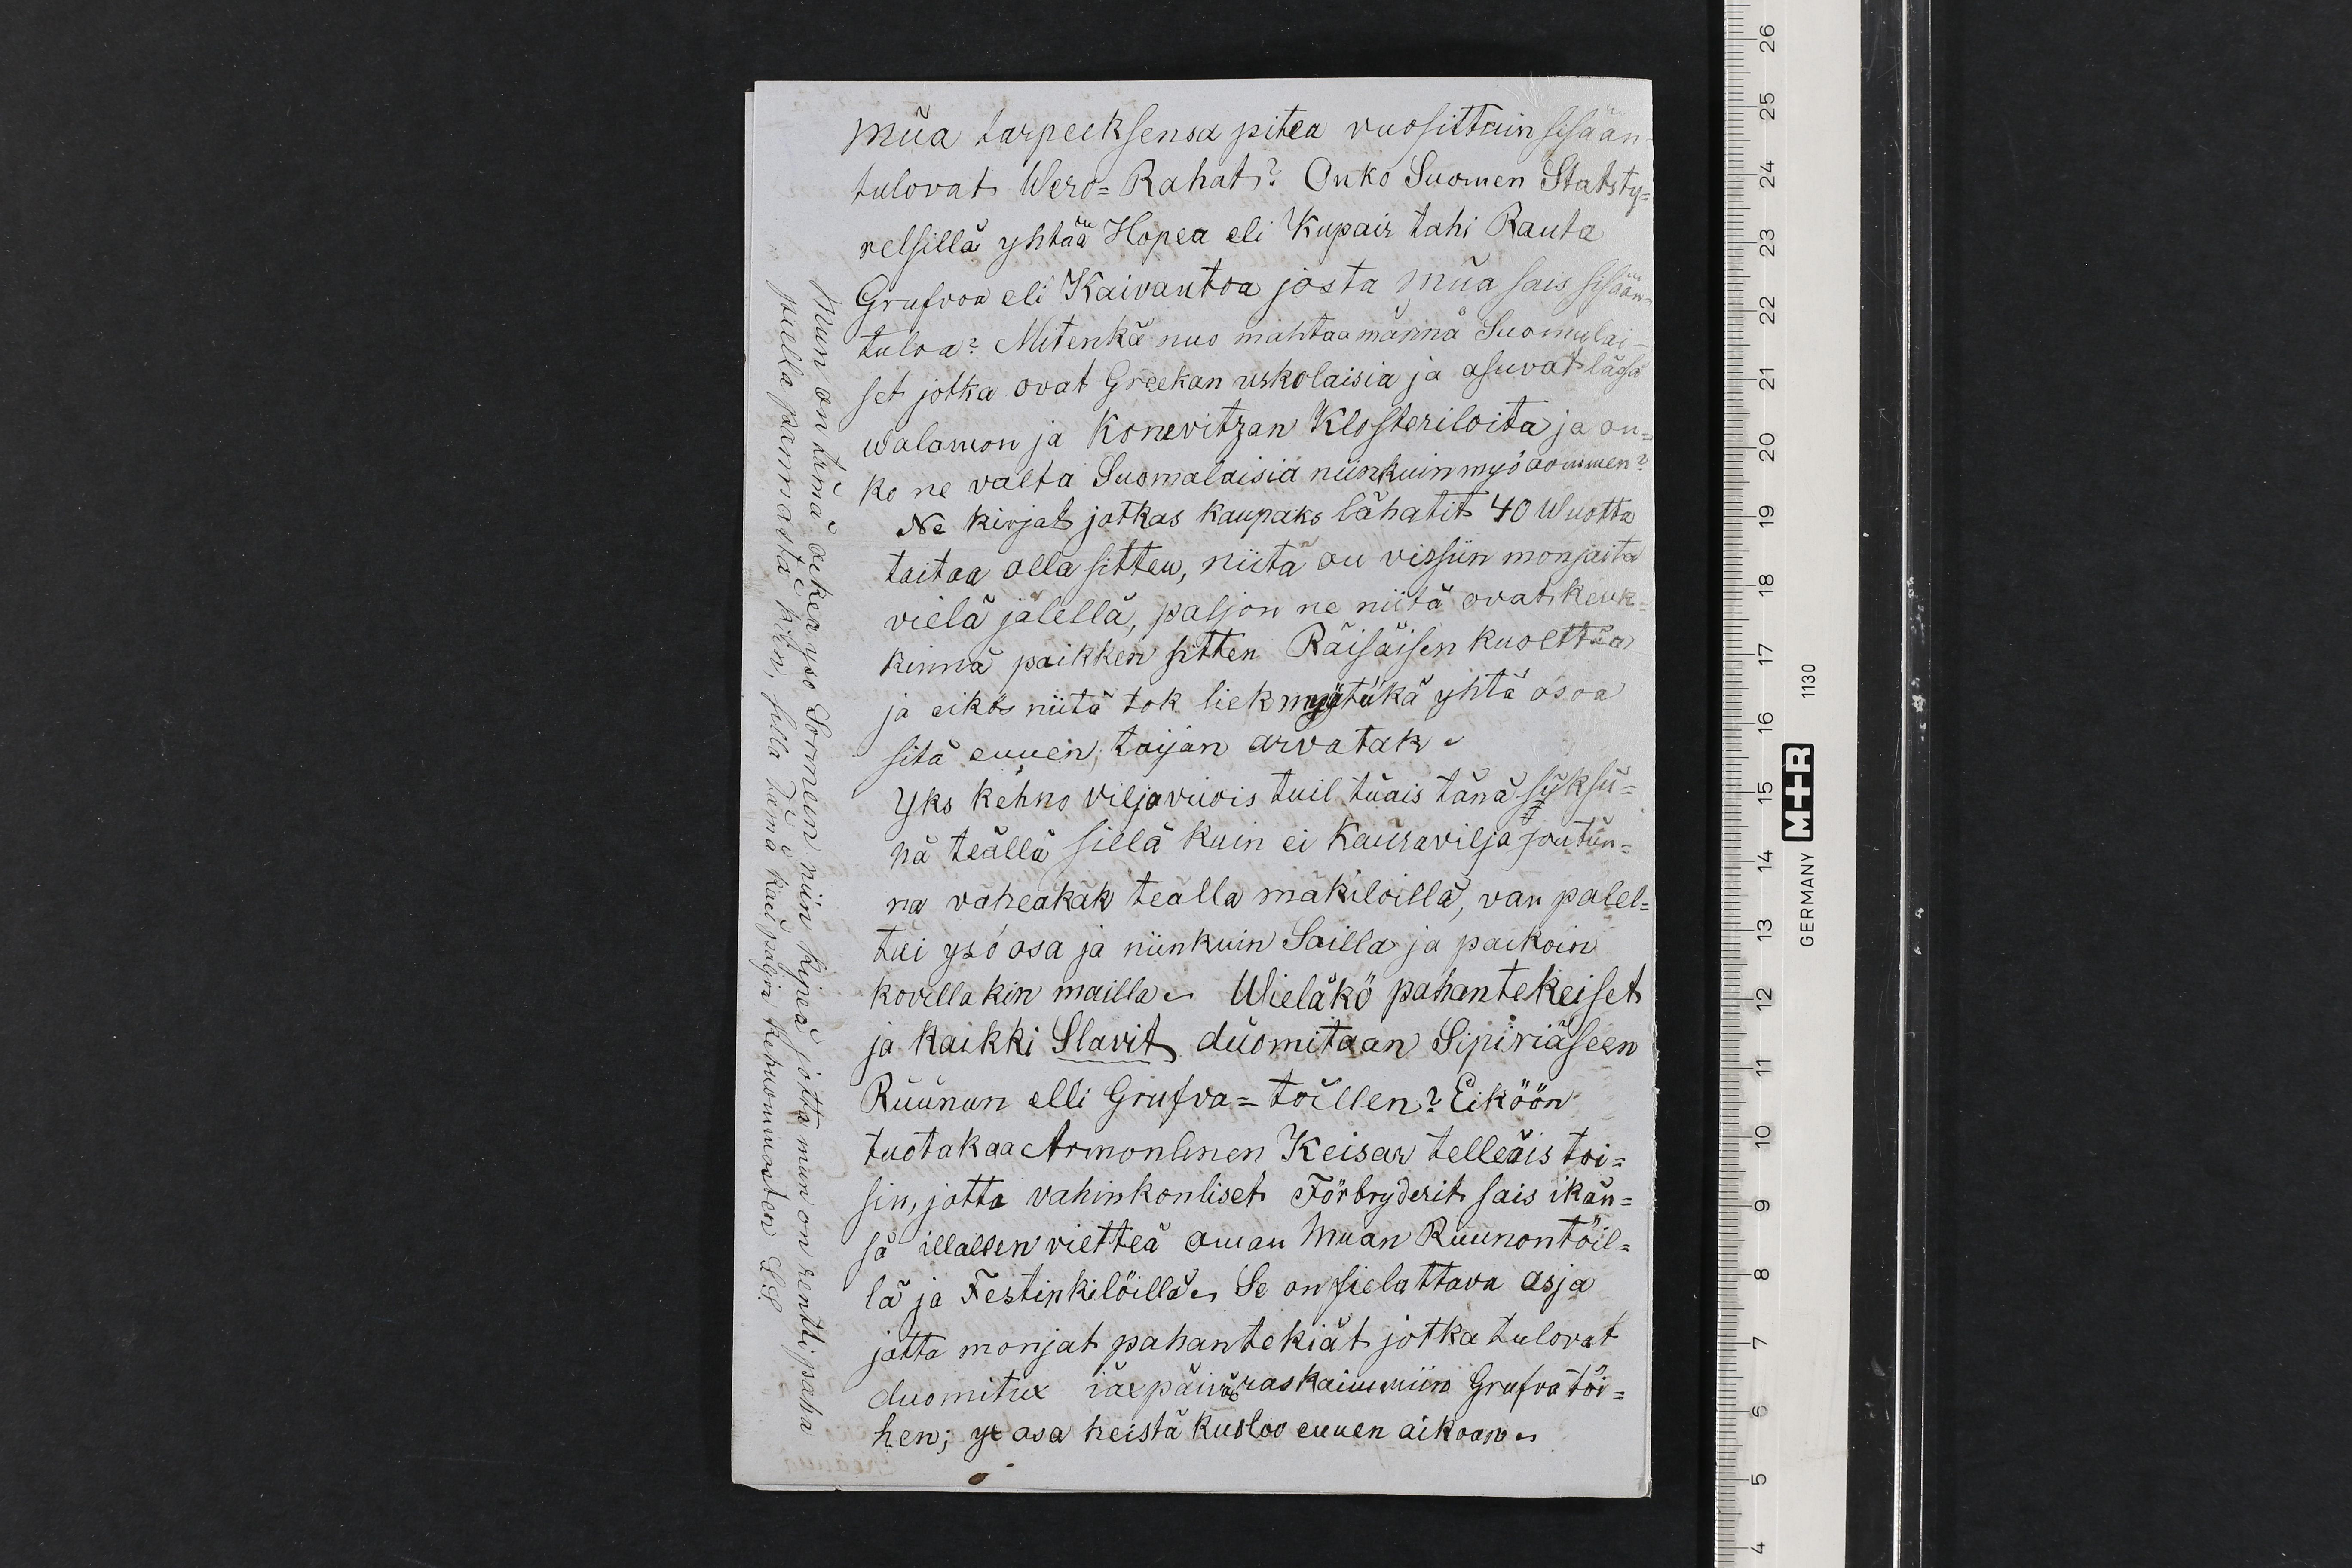 mũa tarpeeksensa pitea vuosittain sisään-
tulovat Wero=Rahat? Onko Suomen Statsty=
relsillä yhtää Hopea eli Kupair tahi Rauta
Grufvoa eli Kaivantoa josta mũa sais sisään-
tuloa? Mitenkä nuo mahtaa männä Suomulai-
set jotka ovat Greekan uskolaisia ja asuvat läysä
walamon ja Konevitzan Klosteriloita ja on=
ko ne valta Suomalaisia niinkuin myö aommen?
Ne kirjat jotkas kaupaks lähatit 40 Wuotta
taitaa olla sitten, niitä on vissiin monjaita
vielä jälellä, paljon ne niitä ovat keuk=
kinnä paikken sitten Räisäisen kuolttua
ja eikös niitä tok liek myötükä yhtä osoa
sitä ennen, taijan arvatak.
Yks kehno viljavuois tuil tüais tänä syksü=
nä teällä sillä kuin ei Kauravilja joutün=
na väheäkäk teällä mäkilöillä, van palel=
tui ysö osa ja niinkuin Soilla ja paikoin
kovillakin mailla. Wieläkö pahantekeiset
ja kaikki Slavit duomitaan Sipiriäseen
Ruunun elli Grufva=töillen? Eiköön
tuotakaa Armonlinen Keisar telleäis toi=
sin, jotta vahinkonliset Förbryderit sais ikän=
sä illalsen vietteä oman Muan Ruunontöil=
lä ja Festinkilöillä. Se on sielattava asja
jotta monjat pahantekiät jotka tulovat
duomitux iäxpäiväx raskaimmiin Grufvatöi=
hen; yx osa heistä kuoloo ennen aikoan.
Muun on tämä oikea yso Sormeen niin kipeä jotta mun on rentti paha
piellä pännästä kiin, sillä tämä käel paljon kehnommasten L.S.